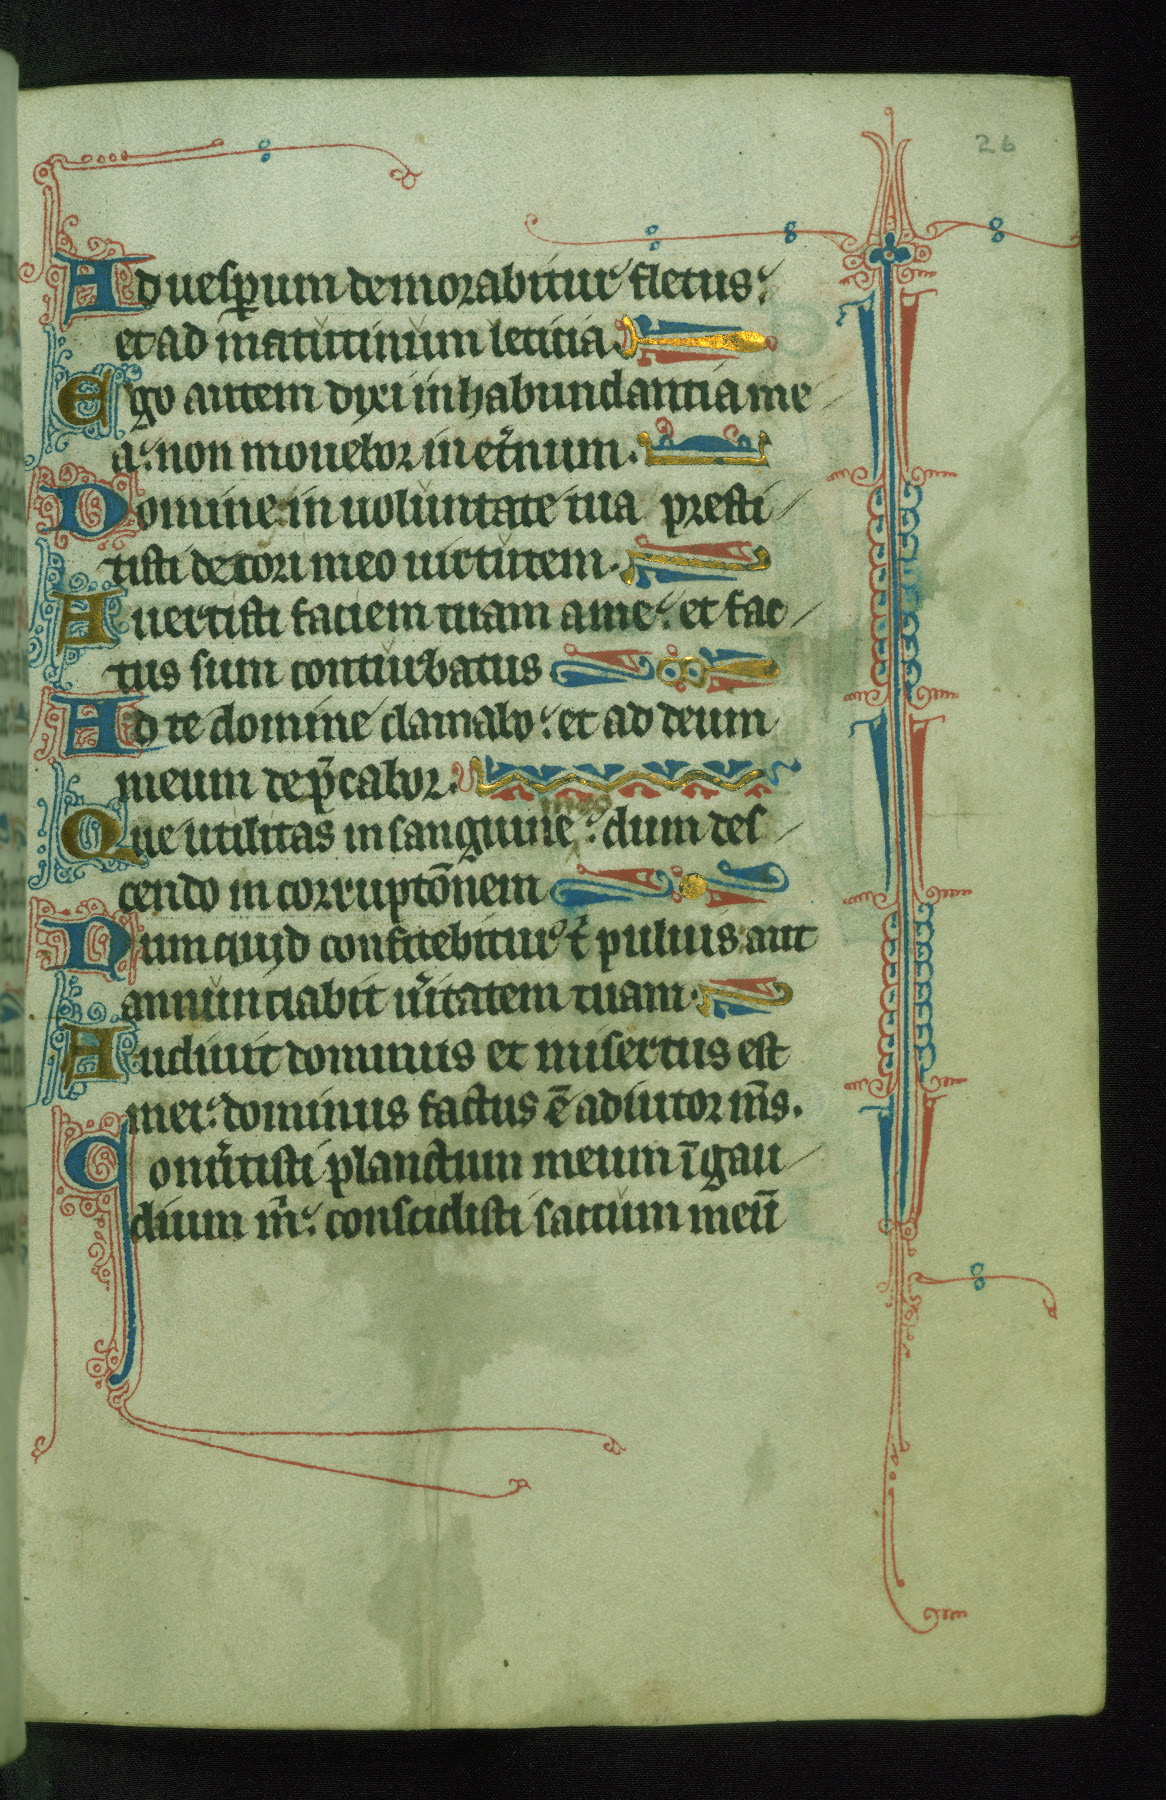 26
Ad uesꝑum demorabitur fletus:
et ad matutinum leticia.
Ego autem dixi in habundantia me
a: non mouebor in et̾num.
Domine in uoluntate tua presti
tisti decori meo uirtutem.
Auertisti faciem tuam a me: et fac
tus sum conturbatus
Ad te domine clamabo: et ad deum
meum dep̄cabor.
meo
Que utilitas in sanguine: dum des
cendo in corruptōnem
Numquid confitebitur t̾ puluis aut
annunciabit u̾itatem tuam.
Audiuit dominus et misertus est
mei: dominus factus ē adiutor m̄s.
Conu̾tisti planctum meum ī gau
dium m̾: conscidisti saccum meū